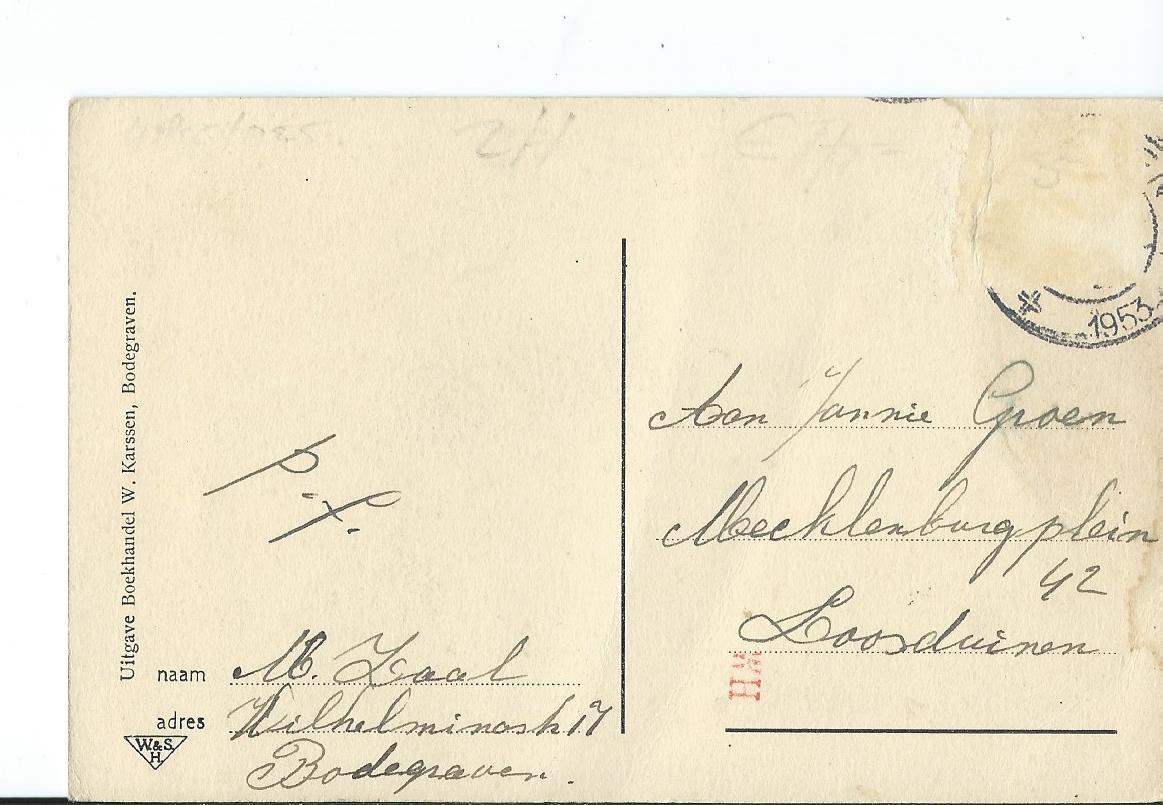 1953
Uitgave Boekhandel W. Karssen, Bodegraven.
p.f.
naam M. Zaal
adres Wilhelminastr 17
Bodegraven.
W&S.
H.
Aan Jannie Groen
Mecklenburgplein
42
Loosduinen
HW